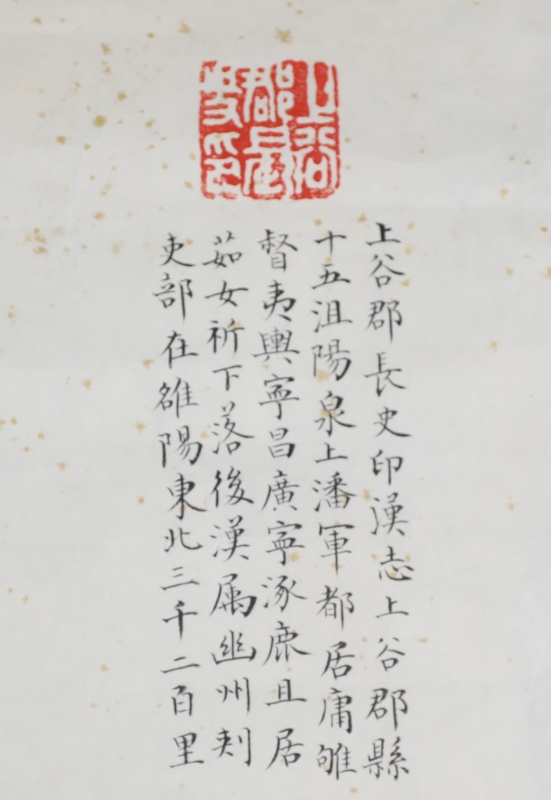 上谷郡長史印
上谷郡長史印漢志上谷郡縣
十五沮陽泉上潘軍都居庸雊
瞀夷輿寧昌廣寧涿鹿且居
茹女祈下落後漢属幽州刾
吏部在雒陽東北三千二百里